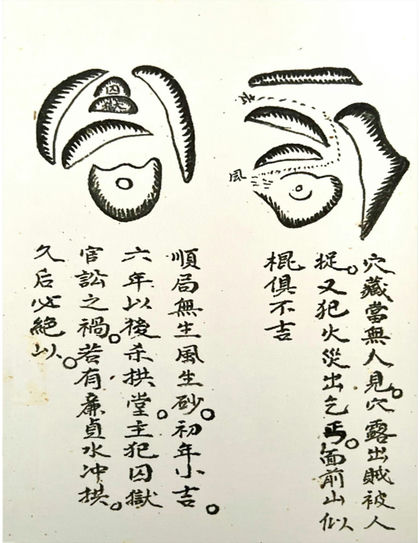 囚
風
穴藏當無人見。穴露出賊被人
捉。又犯火災出乞丐。面前山似
棍俱不吉
順局無生風生砂。初年小吉。
六年以後杀拱堂主犯囚獄
官訟之禍。若有廉貞水冲拱。
久后必絕以。